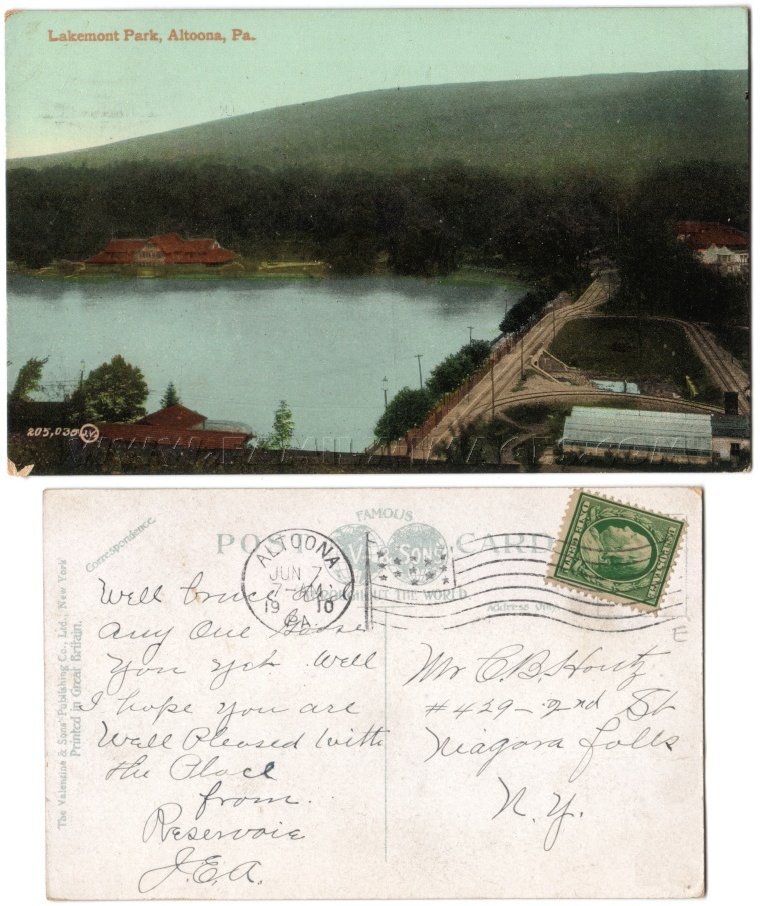 Lakemont Park, Altoona, Pa.
205,030 JV
WWW.FAMILYIMAGES.COM
Correspondence.
FAMOUS
POST CARD
V & SONS
THROUGHOUT THE WORLD
Address Only
The Valentine & Sons' Publishing Co., Ltd., New York
Printed in Great Britain.
ALTOONA
JUN 7
7-AM
19 10
PA.
U.S. POSTAGE
ONE CENT
Well
any One
You yet. Well
I hope you are
Well Pleased With
the Place
from.
Reservoie
J.E.A.
Mr C.B. Houtz
#429-2nd St
Niagara falls
N.Y.
E